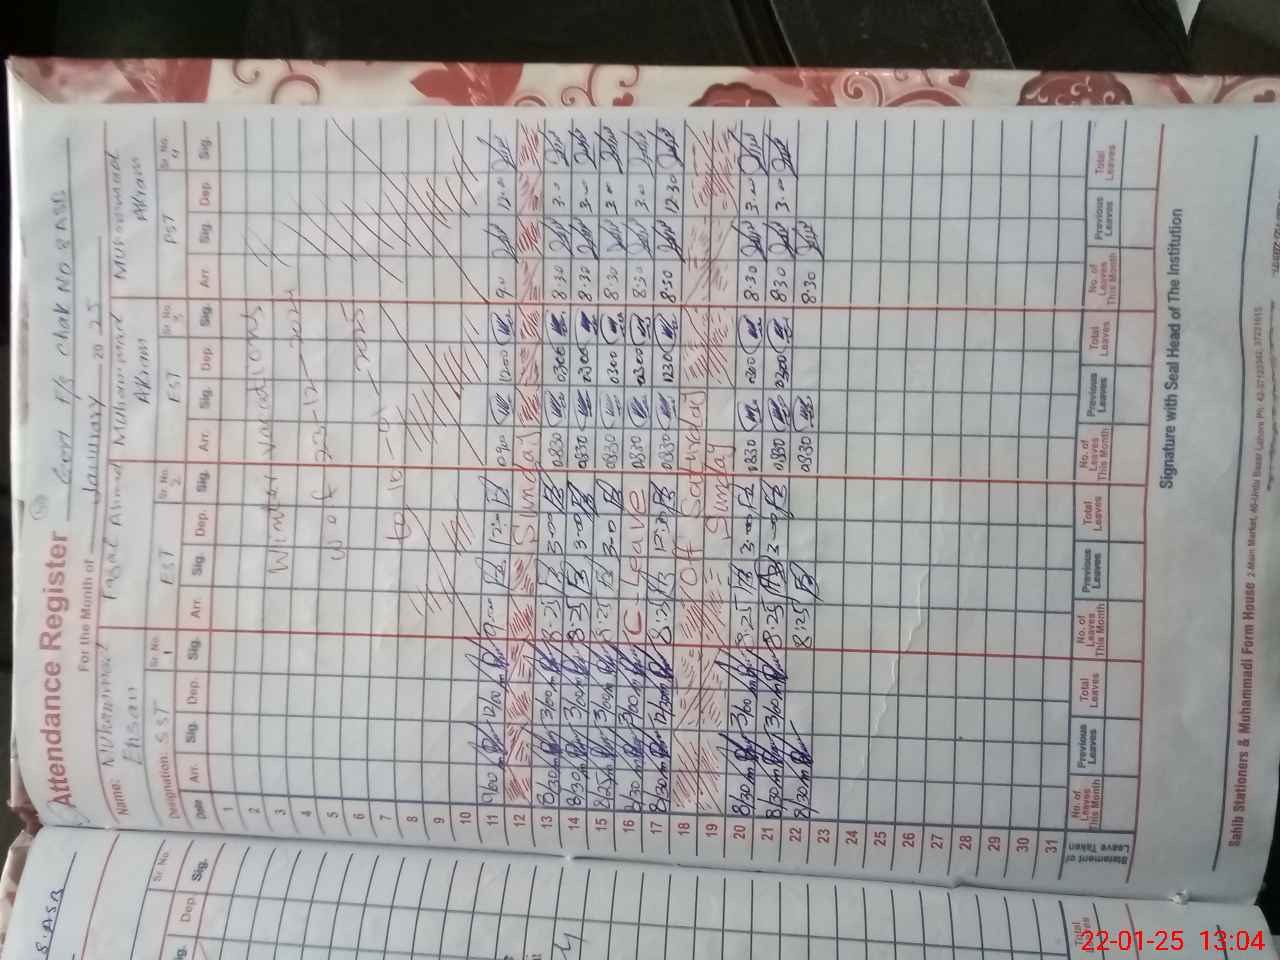 Attendance Register Govt P/S Chak No 8 ASB
For the Month of January 20 25
Name: Muhammad Ehsan Fazal Ahmad Muhammad Akram Muhammad Akram
Designation SST Sr. No. 1 EST Sr. No. 2 EST Sr. No. 3 PST Sr. No. 4
Date Arr. Sig. Dep. Sig. Arr. Sig. Dep. Sig. Arr. Sig. Dep. Sig. Arr. Sig. Dep. Sig.
1
2
3 Winter Vacations
4
5 W.o.f 23-12-2024
6
7 to 10-01-2025
8
9
10
11 9/00 12/00 9:00 12:00 0900 1200 9.0 12.0
12 Sunday
13 8/30 3/00 8:25 3:00 0830 0300 8:30 3.0
14 8/30 3/00 8:25 3:00 0830 0300 8:30 3.0
15 8/25 3/00 8:25 3:00 0830 0300 8:30 3.0
16 8/30 3/00 C. Leave 0830 0300 8:30 3.0
17 8/30 12/30 8:25 12:30 0830 1230 8:30 12:30
18 Off Saturday
19 Sunday
20 8/30 3/00 8:25 3:00 0830 0300 8:30 3.0
21 8/30 3/00 8:25 3:00 0830 0300 8:30 3.0
22 8/30 8:25 0830 8:30
23
24
25
26
27
28
29
30
31
Statement of Leave Taken
No. of Leaves This Month Previous Leaves Total Leaves No. of Leaves This Month Previous Leaves Total Leaves No. of Leaves This Month Previous Leaves Total Leaves No. of Leaves This Month Previous Leaves Total Leaves
Signature with Seal Head of The Institution
Sahib Stationers & Muhammadi Form House 2 Main Market, 40-Urdu Bazar Lahore
8.ASB
Sr. No.
Sig. Dep. Sig.
Total Leaves
22-01-25 13:04